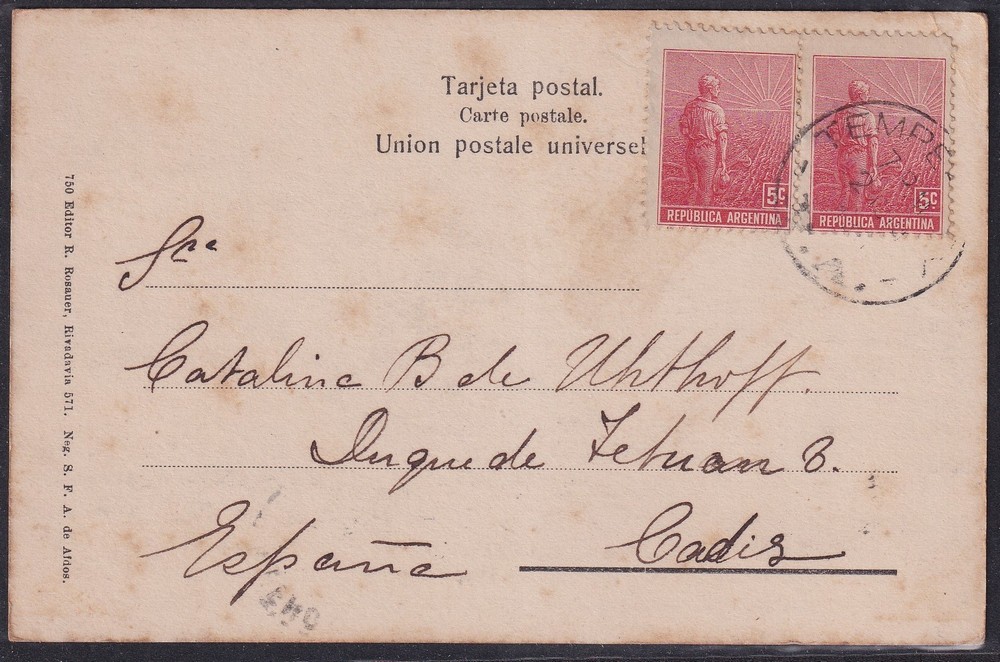 Tarjeta postal.
Carte postale.
Union postale universel
5c
REPÚBLICA ARGENTINA
5c
REPÚBLICA ARGENTINA
TEMPE
Sra
Catalina B de Uhthoff.
Duque de Tetuan 8.
España Cadis
750 Editor R. Rosauer, Rivadavia 571. Neg. S. F. A. de Afdos.